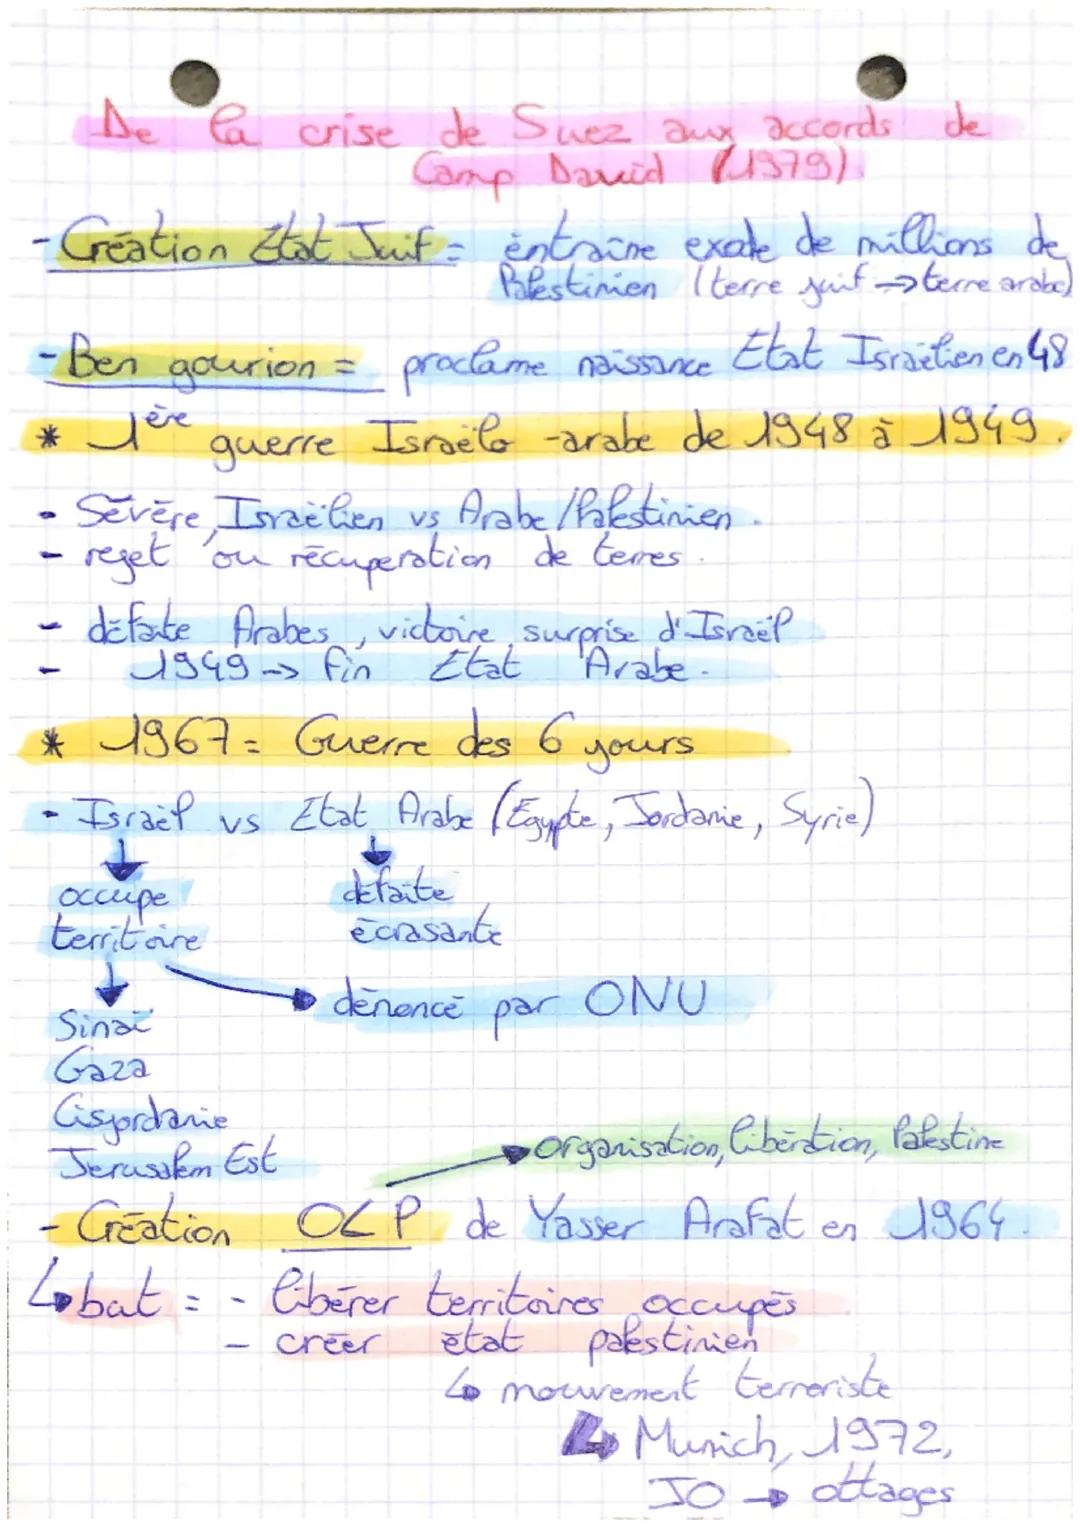 De la crise de Suez aux accords de
Camp David (1979)
- Création Etat Juif = entraîne exode de millions de
Palestinien (terre juif → terre arabe)
- Ben gourion = proclame naissance Etat Israëlien en 48
* 1ère guerre Israëlo-arabe de 1948 à 1949.
- Sévère, Israëlien vs Arabe/Palestinien.
- rejet ou récuperation de terres.
- défaite Arabes, victoire surprise d'Israël
- 1949 → fin Etat Arabe.
* 1967 = Guerre des 6 jours
- Israël vs Etat Arabe (Egypte, Jordanie, Syrie)
occupe défaite
territoire écrasante
→ dénoncé par ONU
Sinaï
Gaza
Cisjordanie
→ organisation, libération, Palestine
Jerusalem Est
- Création OLP de Yasser Arafat en 1964.
↳ but = - libérer territoires occupés
- créer état palestinien
↳ mouvement terroriste
↳ Munich, 1972,
JO → ottages